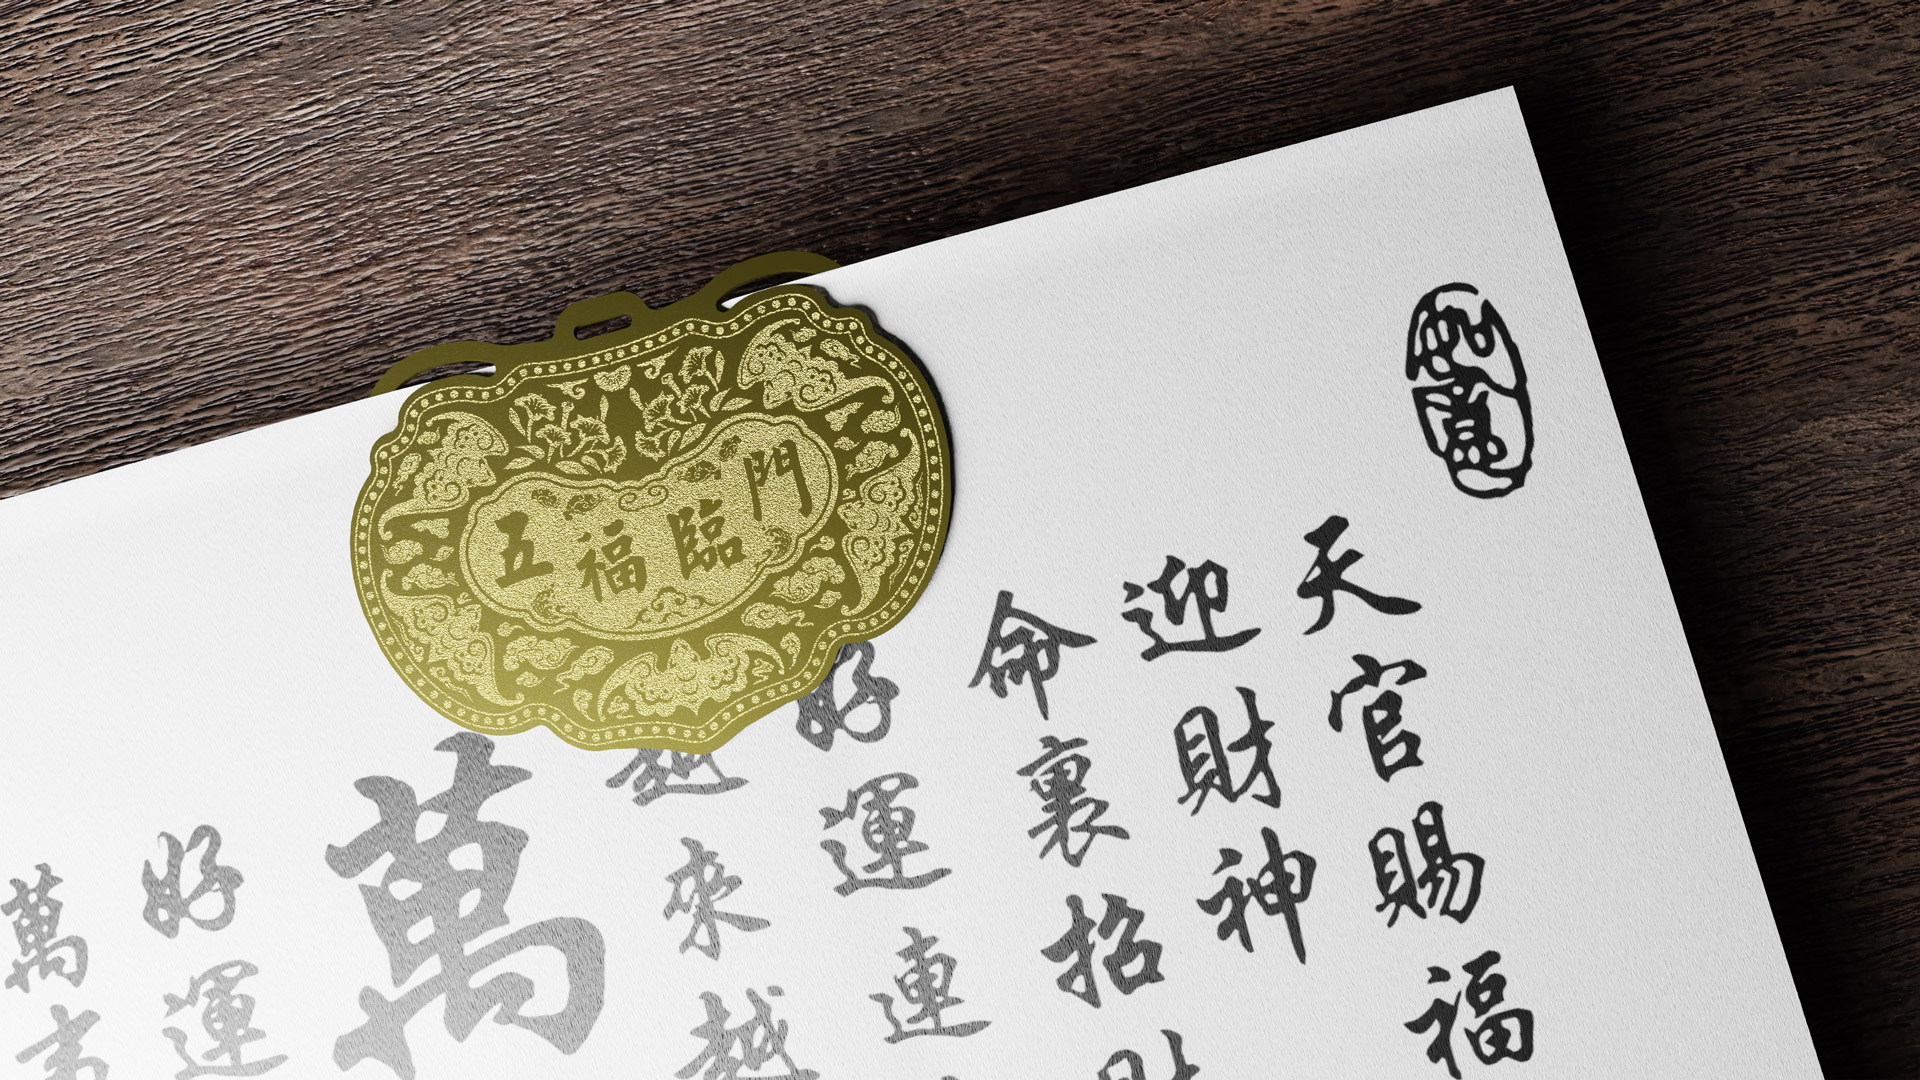 五福臨門
天官賜福
迎財神
命裏招財
好運連
越來越
萬
好運
萬